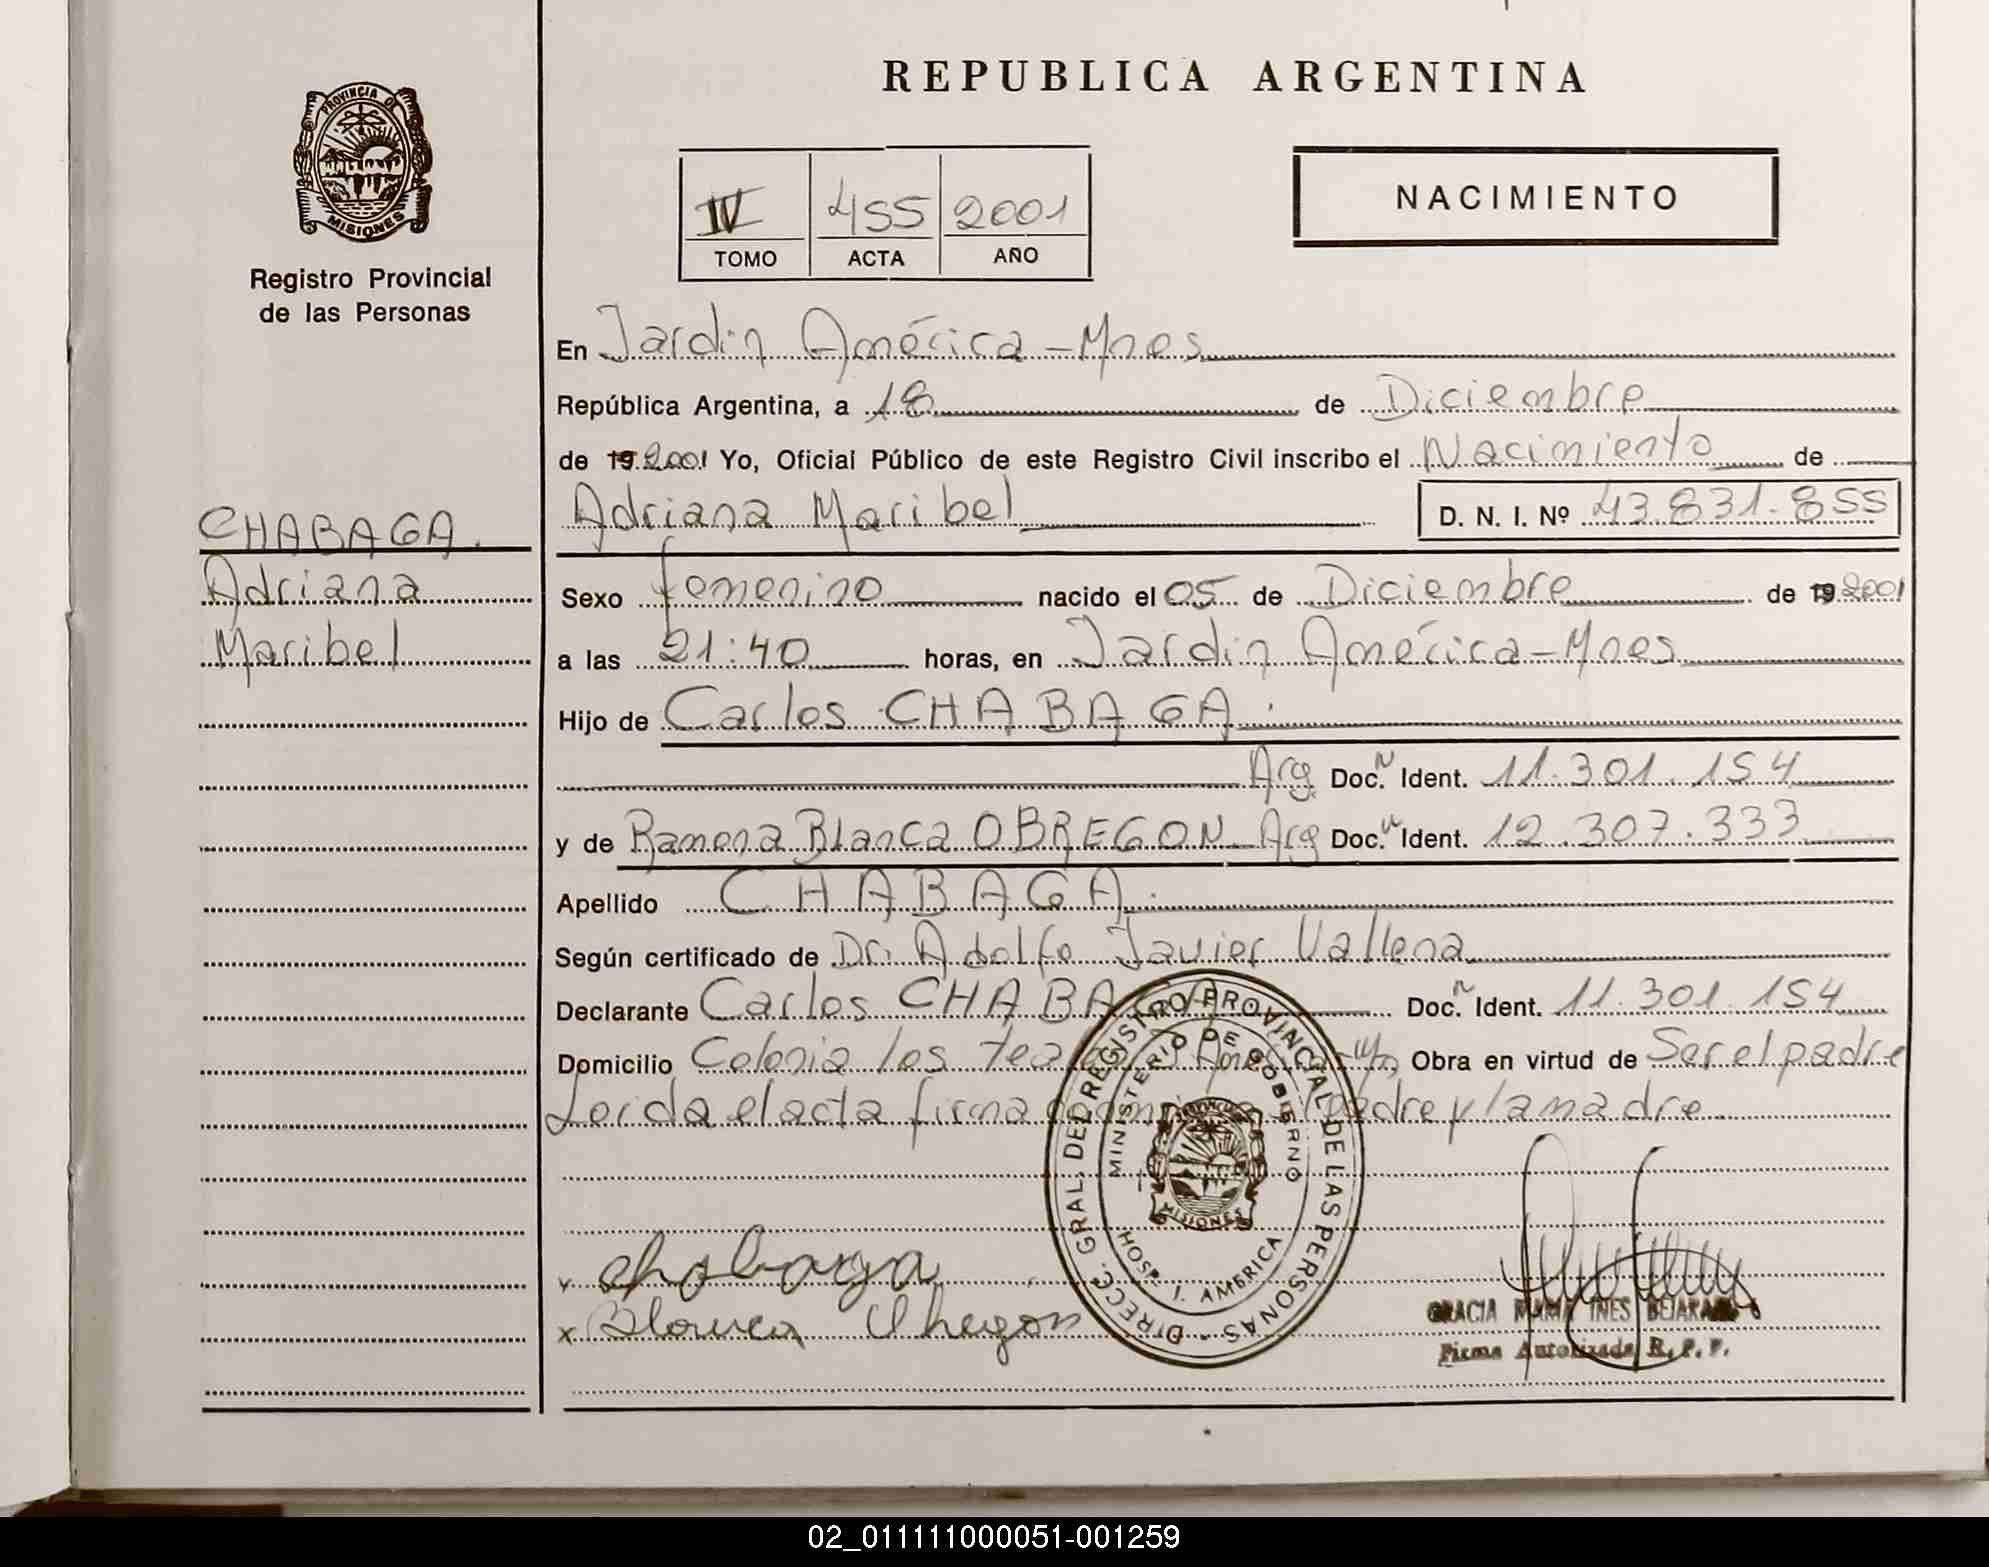 REPUBLICA ARGENTINA
PROVINCIA DE
MISIONES
Registro Provincial
de las Personas
IV 455 2001
TOMO ACTA AÑO
NACIMIENTO
En Jardin América - Mnes
República Argentina, a 18 de Diciembre
de 19 2001 Yo, Oficial Público de este Registro Civil inscribo el Nacimiento de
Adriana Maribel D. N. I. Nº 43.831.855
CHABAGA.
Adriana
Maribel
Sexo femenino nacido el 05 de Diciembre de 19 2001
a las 21:40 horas, en Jardin América - Mnes
Hijo de Carlos CHABAGA.
Arg. Doc. N Ident. 11.301.154
y de Ramona Blanca OBREGON - Arg Doc. N Ident. 12.307.333
Apellido CHABAGA.
Según certificado de Dr. Adolfo Javier Vallena
Declarante Carlos CHABAGA Doc. N Ident. 11.301.154
Domicilio Colonia los Obra en virtud de Ser el padre
Leida el acta firma el padre y la madre
DIRECC. GRAL. DEL REGISTRO PROVINCIAL DE LAS PERSONAS
MINISTERIO DE GOBIERNO
MISIONES
HOSP. J. AMERICA
chabaga
x Blanca Obregon
GRACIA MARIA INES BEJARANO
Firma Autorizada R. P. P.
02_011111000051-001259